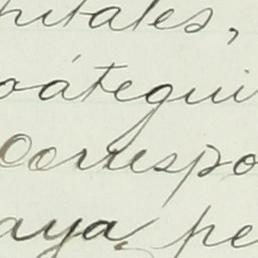 pitales,
oátegui
Correspo
aya, pe